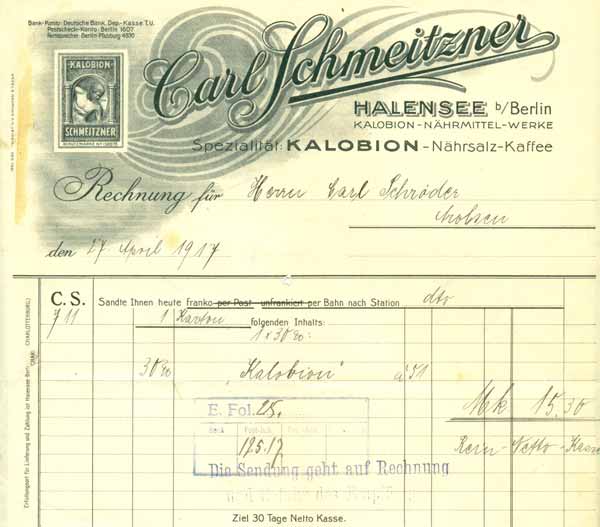 Bank-Konto: Deutsche Bank, Dep.-Kasse T.U.
Postscheck-Konto: Berlin 1607
Fernsprecher: Berlin-Pfalzburg 4630
KALOBION
SCHMEITZNER
Carl Schmeitzner
HALENSEE b/Berlin
KALOBION-NÄHRMITTEL-WERKE
Spezialität: KALOBION-Nährsalz-Kaffee
Rechnung für Herrn Carl Schröder
den 27 April 1917
C. S. Sandte Ihnen heute franko per Post unfrankiert per Bahn nach Station dto
711 1 Karton folgenden Inhalts:
1 x 30
30 "Kalobion" à 51
Mk 15.30
E. Fol. 25.
Rein-Netto-Kasse
17.5.17
Die Sendung geht auf Rechnung
Ziel 30 Tage Netto Kasse.
Erfüllungsort für Lieferung und Zahlung ist Halensee-Berlin
CHARLOTTENBURG